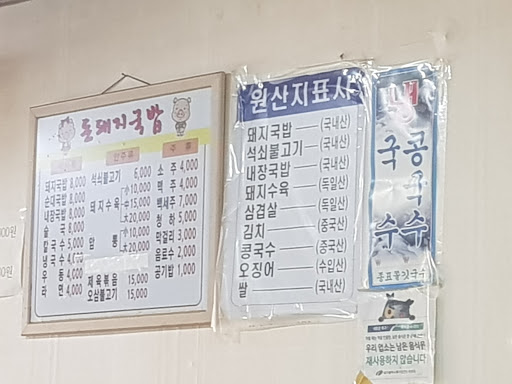 돈돼지국밥
돼지국밥 8,000
순대국밥 8,000
내장국밥 8,000
국수 5,000
냉국수
우동 4,000
라면 4,000
안주류
석쇠불고기 6,000
돼지수육
小10,000
中15,000
大20,000
小10,000
中15,000
大20,000
제육볶음 15,000
오삼불고기 15,000
주류
소주 4,000
맥주 4,000
백세주 7,000
청하 5,000
막걸리 3,000
음료수 2,000
공기밥 1,000
원산지표시
돼지국밥 (국내산)
석쇠불고기 (국내산)
내장국밥 (국내산)
돼지수육 (독일산)
삼겹살 (독일산)
김치 (중국산)
콩국수 (중국산)
오징어 (수입산)
쌀 (국내산)
콩국수
국수
우리 업소는 남은 음식물
재사용하지 않습니다